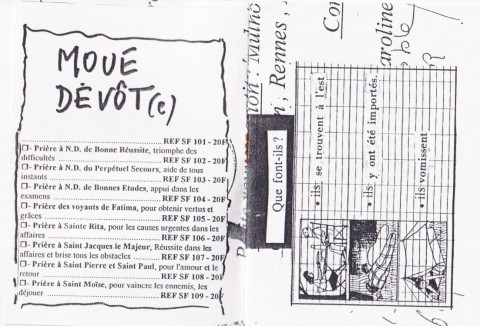 MOUE
DÉVÔT(e)
REF SF 101 - 20F
❒- Prière à N.D. de Bonne Réussite, triomphe des
difficultés REF SF 102 - 20F
❒- Prière à N.D. du Perpétuel Secours, aide de tous
instants REF SF 103 - 20F
❒- Prière à N.D. de Bonnes Etudes, appui dans les
examens REF SF 104 - 20F
❒- Prière des voyants de Fatima, pour obtenir vertus et
grâces REF SF 105 - 20F
❒- Prière à Sainte Rita, pour les causes urgentes dans les
affaires REF SF 106 - 20F
❒- Prière à Saint Jacques le Majeur, Réussite dans les
affaires et brise tous les obstacles REF SF 107 - 20F
❒- Prière à Saint Pierre et Saint Paul, pour l'amour et le
retour REF SF 108 - 20F
❒- Prière à Saint Moïse, pour vaincre les ennemis, les
déjouer REF SF 109 - 20F
Rennes,
aroline
Que font-ils ?
• ils se trouvent à l'est
• ils y ont été importés.
• ils vomissent